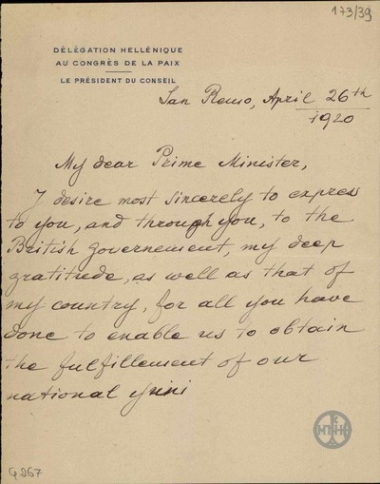 173/39
DÉLÉGATION HELLÉNIQUE
AU CONGRÈS DE LA PAIX
LE PRÉSIDENT DU CONSEIL
San Remo, April 26th
1920
My dear Prime Minister,
I desire most sincerely to express
to you, and through you, to the
British Governement, my deep
gratitude, as well as that of
my country, for all you have
done to enable us to obtain
the fulfillement of our
national